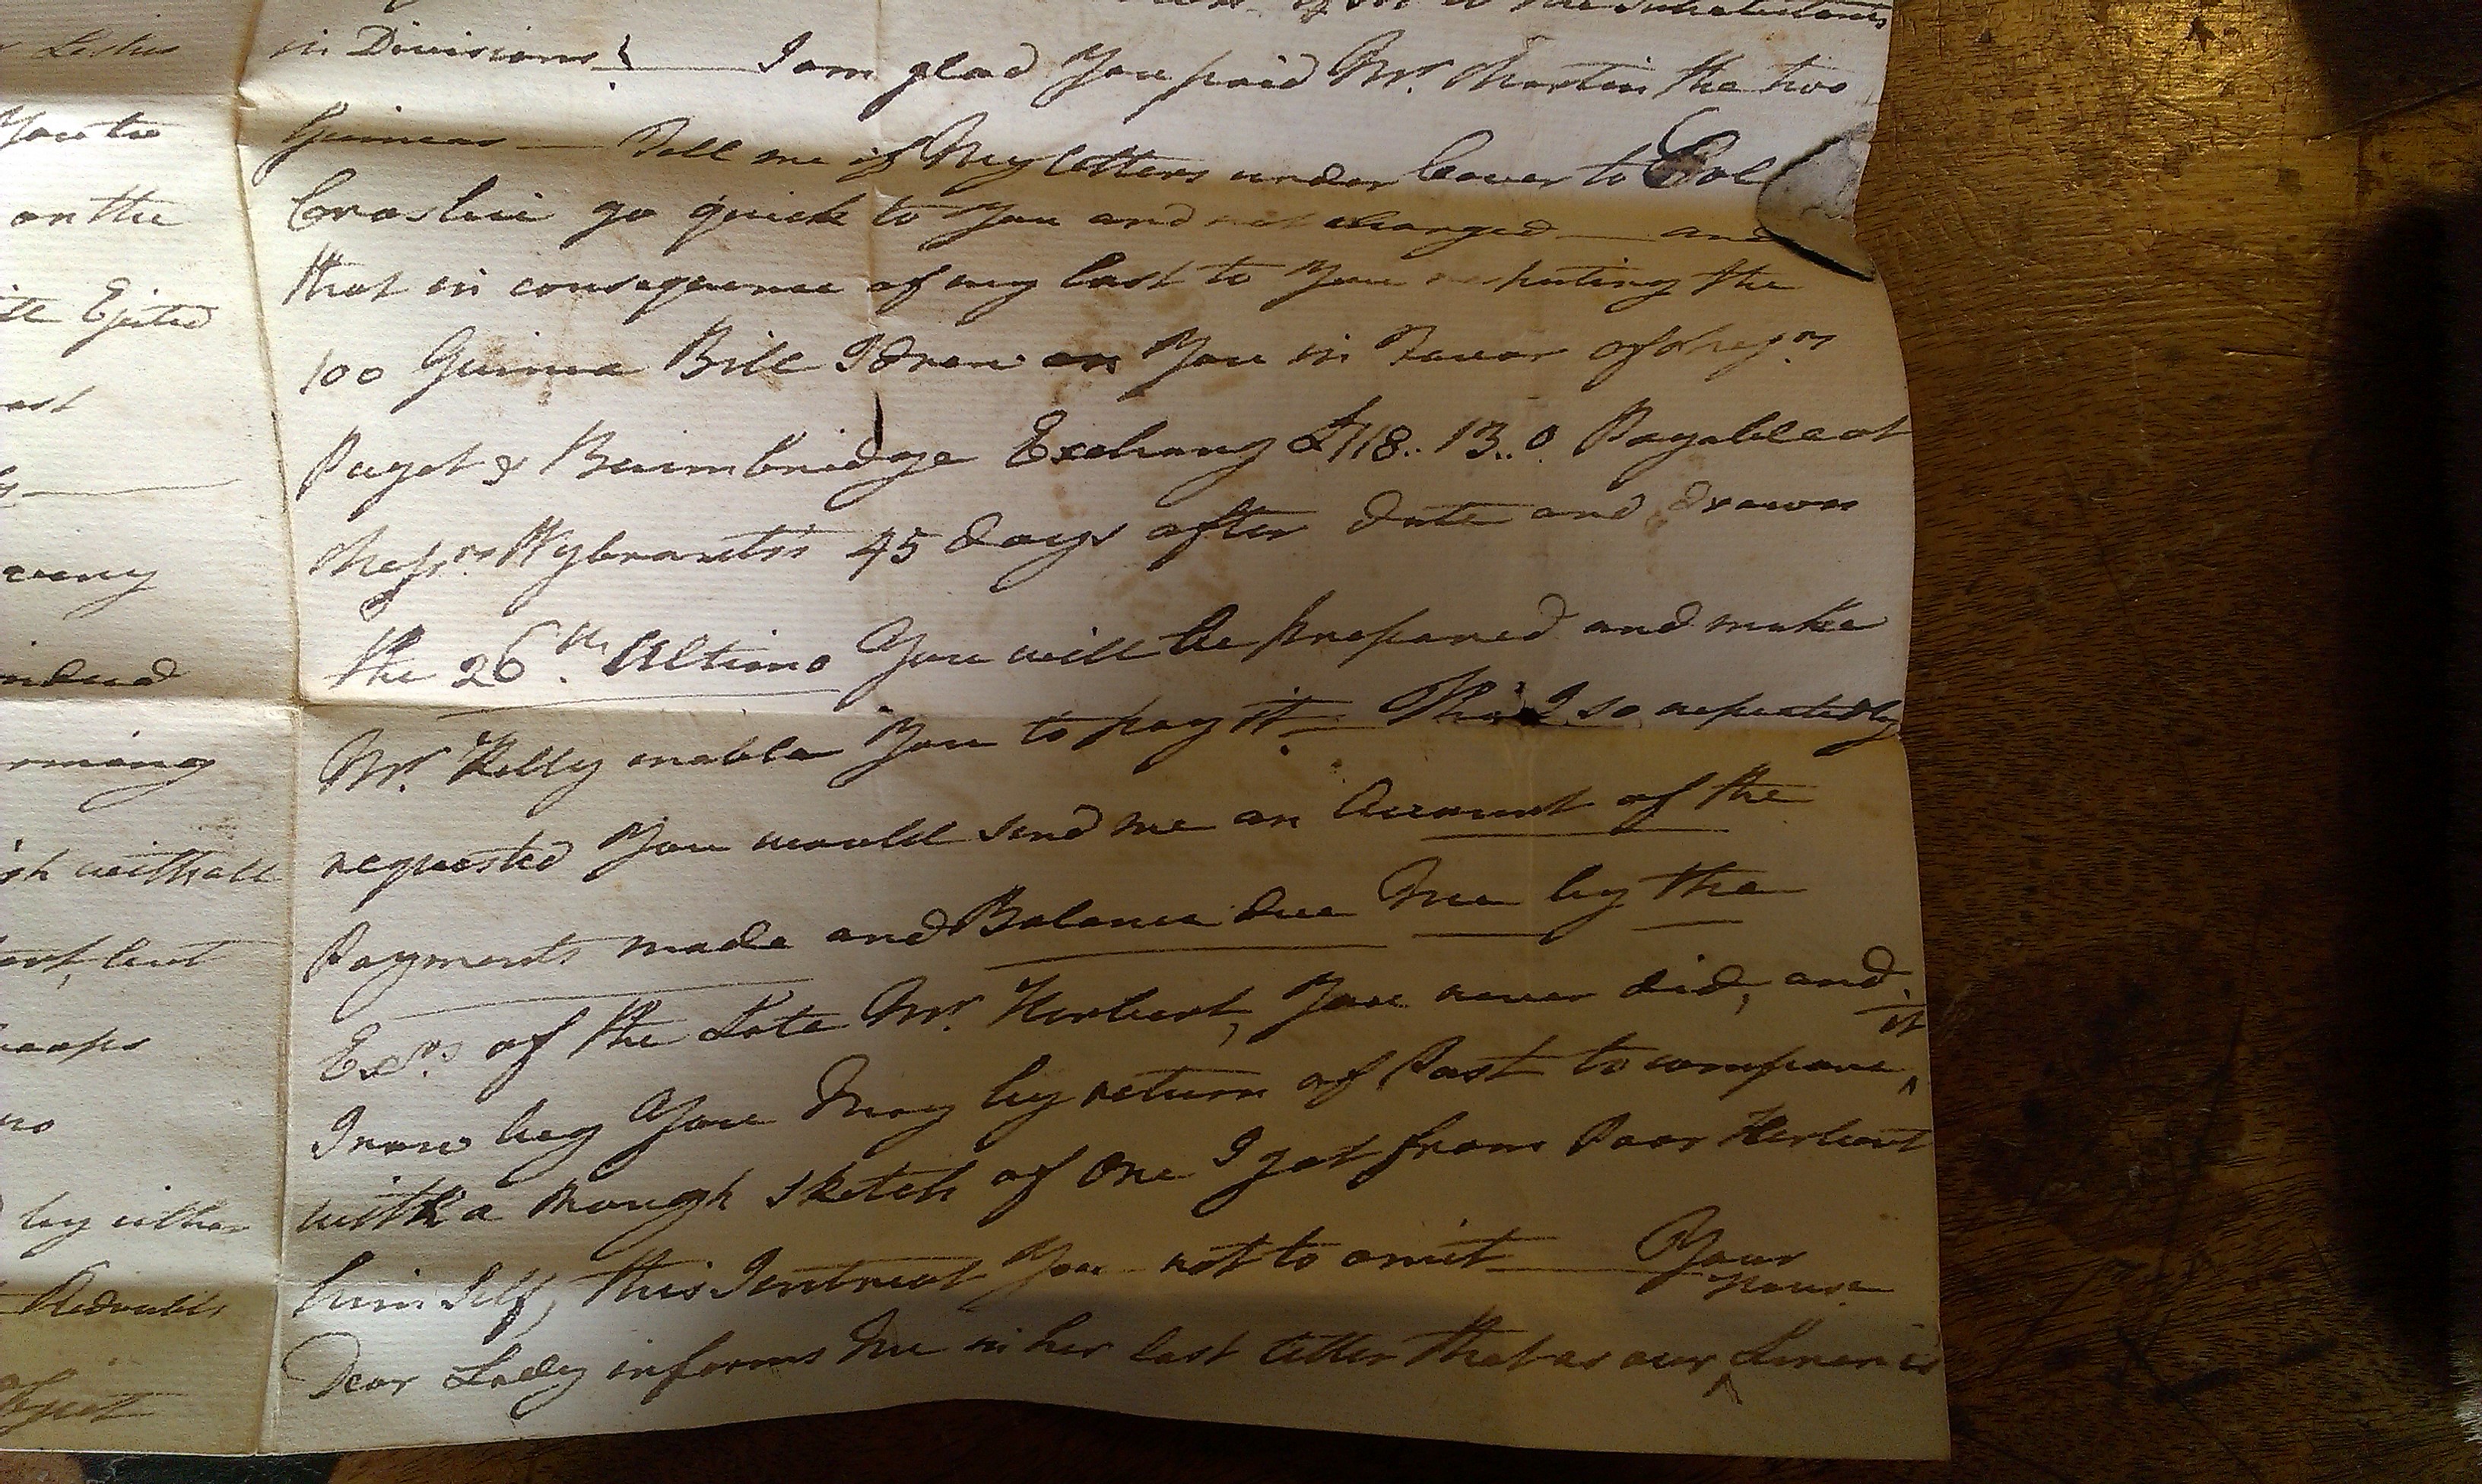 Letters
You to
on the
Ejected
ast
ming
with all
but
no
by either
Redoubts
Inhabitants
in Divisions! I am glad You paid Mr. Martin the two
Guineas — Tell me if My letters under Cover to Col
go quick to You and not charged — and
that in consequence of my last to You respecting the
100 Guinea Bill I drew on You in Favor of Messrs
Paget & Baimbridge Exchang £118..13..0 Payable at
Messrs Wybrants's 45 days after date and drawn
the 26th. Ultimo You will be prepared and make
Mr. Kelly enable You to pay it. — Tho' I so repeatedly
requested You would send me an Account of the
Payments made and Balance due Me by the
Exrs. of the Late Mr. Herbert, You never did, and
I now beg You May by return of Post to compare ^ it
with a rough sketch of One I got from Poor Herbert
him self, this I entreat You not to omit — Your
Dear Lady informs Me in her last letter that as our ^ house Linen is